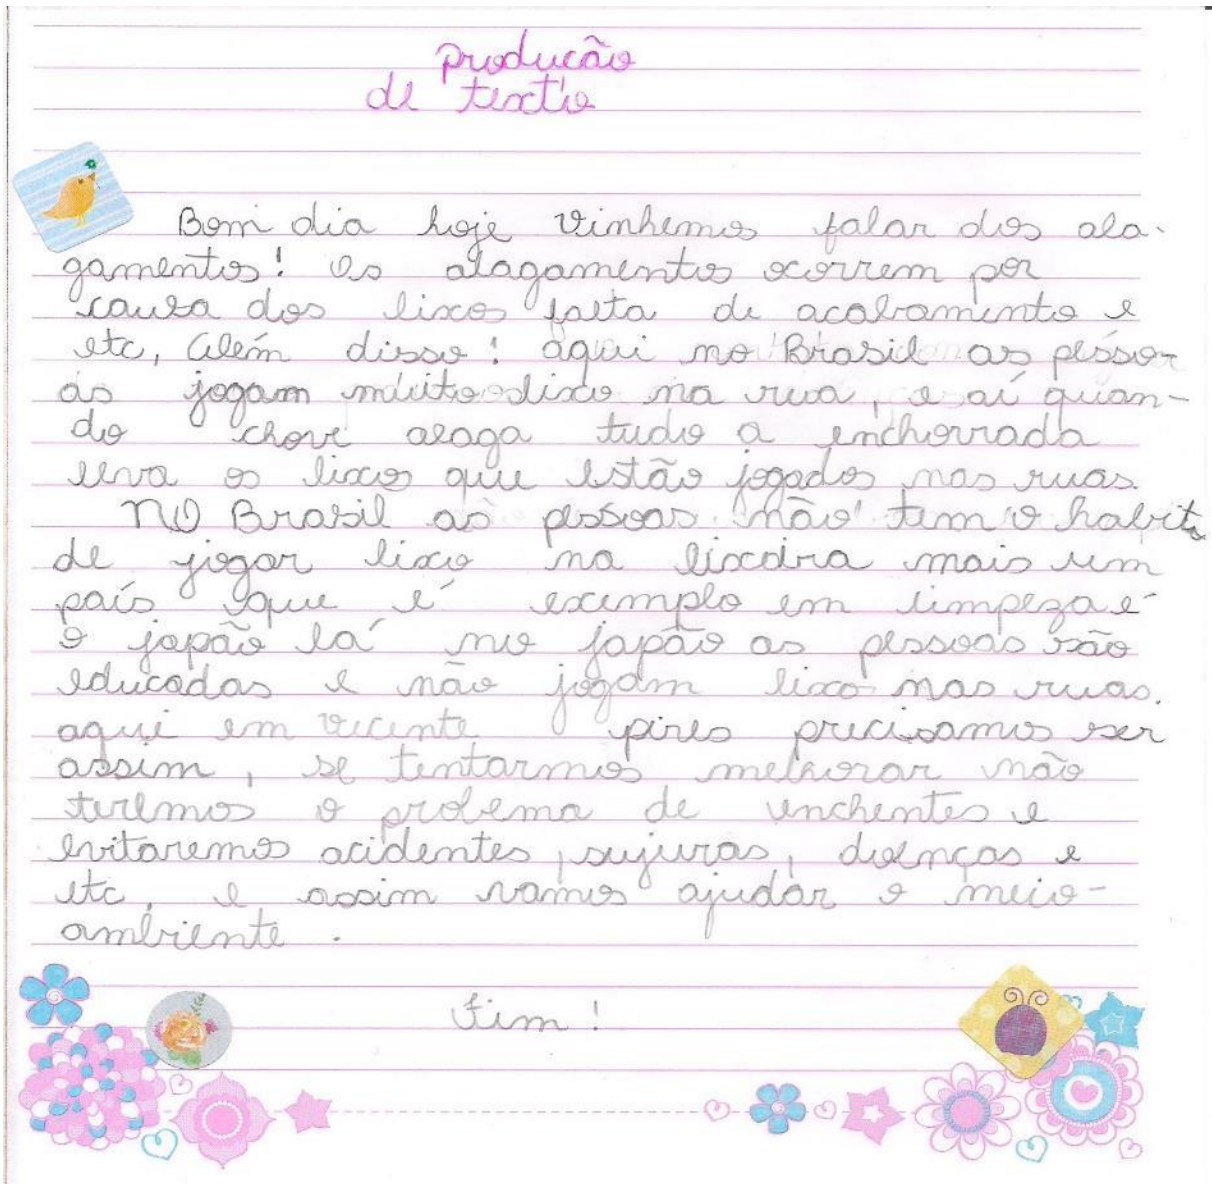 produção
de texto
Bom dia hoje vinhemos falar dos ala-
gamentos! Os alagamentos ocorrem por
causa dos lixos falta de acabamento e
etc, Além disso! aqui no Brasil as pesso-
as jogam muito lixo na rua, e aí quan-
do chove alaga tudo a enchorrada
leva os lixos que estão jogados nas ruas.
NO Brasil as pessoas não tem o habito
de jogar lixo na lixeira mais um
país que é exemplo em limpeza é
o japão lá no japão as pessoas são
educadas e não jogam lixo nas ruas.
aqui em vicente pires precisamos ser
assim, se tentarmos melhorar não
teremos o problema de enchentes e
evitaremos acidentes, sujuras, doenças e
etc, e assim vamos ajudar o meio-
ambiente.
Fim!